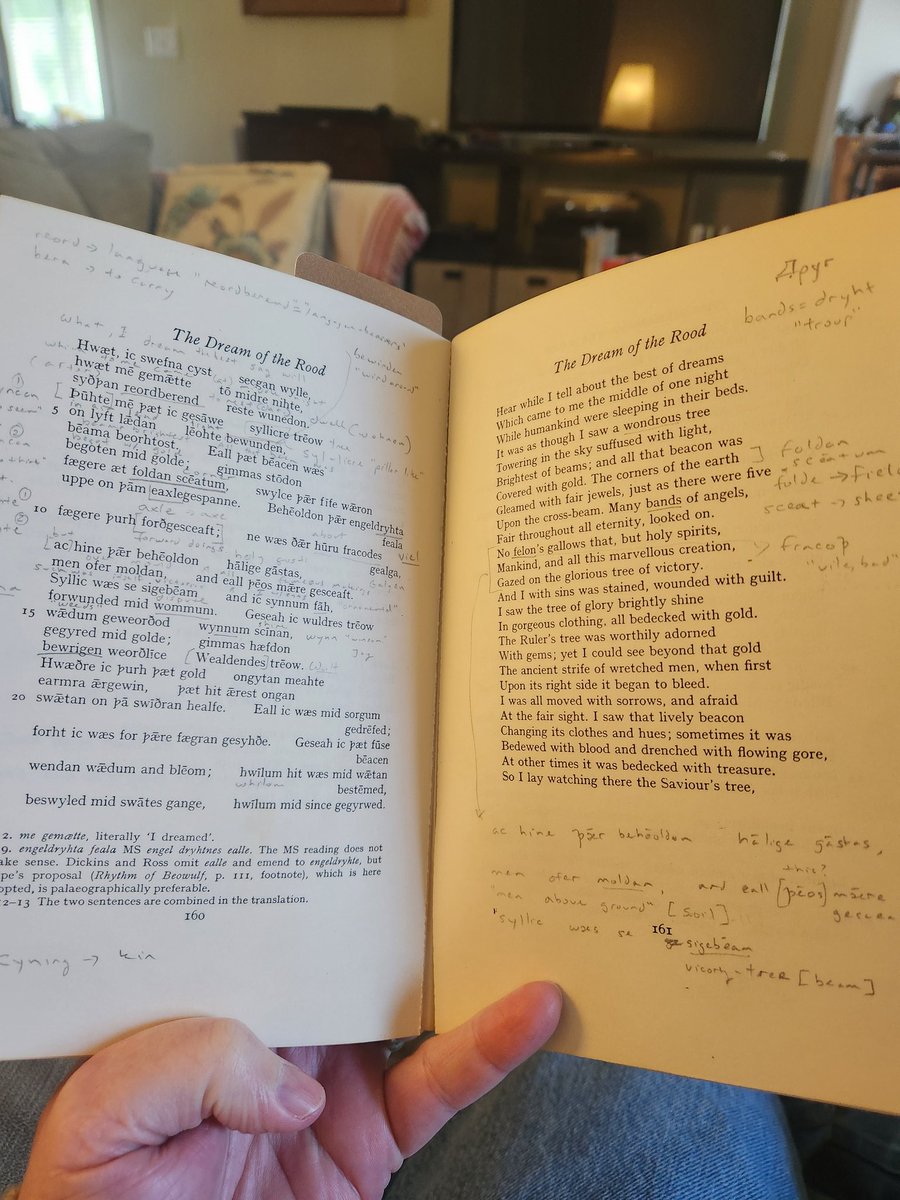 reord → language "reordberend" = language-bearers
bera → to carry
The Dream of the Rood
Hwæt, ic swefna cyst secgan wylle,
hwæt mē gemætte tō midre nihte,
syðþan reordberend reste wunedon.
Þūhte mē þæt ic gesāwe syllicre trēow
5 on lyft lǣdan lēohte bewunden,
bēama beorhtost. Eall þæt bēacen wæs
begoten mid golde; gimmas stōdon
fægere æt foldan scēatum, swylce þǣr fīfe wǣron
uppe on þām eaxlegespanne. Behēoldon þǣr engeldryhta
feala
10 fægere þurh forðgesceaft; ne wæs ðǣr hūru fracodes
gealga,
ac hine þǣr behēoldon hālige gāstas,
men ofer moldan, and eall þēos mǣre gesceaft.
Syllic wæs se sigebēam and ic synnum fāh,
forwunded mid wommum. Geseah ic wuldres trēow
15 wǣdum geweorðod wynnum scīnan,
gegyred mid golde; gimmas hæfdon
bewrigen weorðlīce Wealdendes trēow.
Hwæðre ic þurh þæt gold ongytan meahte
earmra ǣrgewin, þæt hit ǣrest ongan
20 swǣtan on þā swīðran healfe. Eall ic wæs mid sorgum
gedrēfed;
forht ic wæs for þǣre fægran gesyhðe. Geseah ic þæt fūse
bēacen
wendan wǣdum and blēom; hwīlum hit wæs mid wǣtan
bestēmed,
beswyled mid swātes gange, hwīlum mid since gegyrwed.
2. me gemætte, literally 'I dreamed'.
9. engeldryhta feala MS engel dryhtnes ealle. The MS reading does not
ake sense. Dickins and Ross omit ealle and emend to engeldryhte, but
pe's proposal (Rhythm of Beowulf, p. 111, footnote), which is here
opted, is palaeographically preferable.
2–13 The two sentences are combined in the translation.
160
Cyning → kin
Друг
bands = dryht
"troup"
The Dream of the Rood
Hear while I tell about the best of dreams
Which came to me the middle of one night
While humankind were sleeping in their beds.
It was as though I saw a wondrous tree
Towering in the sky suffused with light,
Brightest of beams; and all that beacon was
Covered with gold. The corners of the earth
Gleamed with fair jewels, just as there were five
Upon the cross-beam. Many bands of angels,
Fair throughout all eternity, looked on.
No felon's gallows that, but holy spirits,
Mankind, and all this marvellous creation,
Gazed on the glorious tree of victory.
And I with sins was stained, wounded with guilt.
I saw the tree of glory brightly shine
In gorgeous clothing, all bedecked with gold.
The Ruler's tree was worthily adorned
With gems; yet I could see beyond that gold
The ancient strife of wretched men, when first
Upon its right side it began to bleed.
I was all moved with sorrows, and afraid
At the fair sight. I saw that lively beacon
Changing its clothes and hues; sometimes it was
Bedewed with blood and drenched with flowing gore,
At other times it was bedecked with treasure.
So I lay watching there the Saviour's tree,
foldan
sceatum
fulde → field
sceat → sheet
fracoþ
"vile, bad"
ac hine þǣr behēoldon hālige gāstas,
this?
men ofer moldan, and eall [þēos] mǣre
"men above ground" [soil]
"syllic wæs se sigebēam
161
victory-tree [beam]